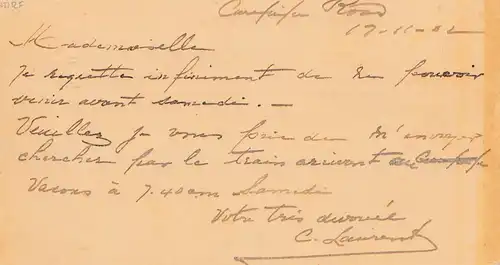 Curepipe Road
17-11-82
Mademoiselle
Je regrette infiniment de ne pouvoir
venir avant samedi. —
Veuillez je vous prie de m'envoyer
chercher par le train arrivant au
Vacoas à 7.40am Samedi
Votre très dévoué
C. Laurent